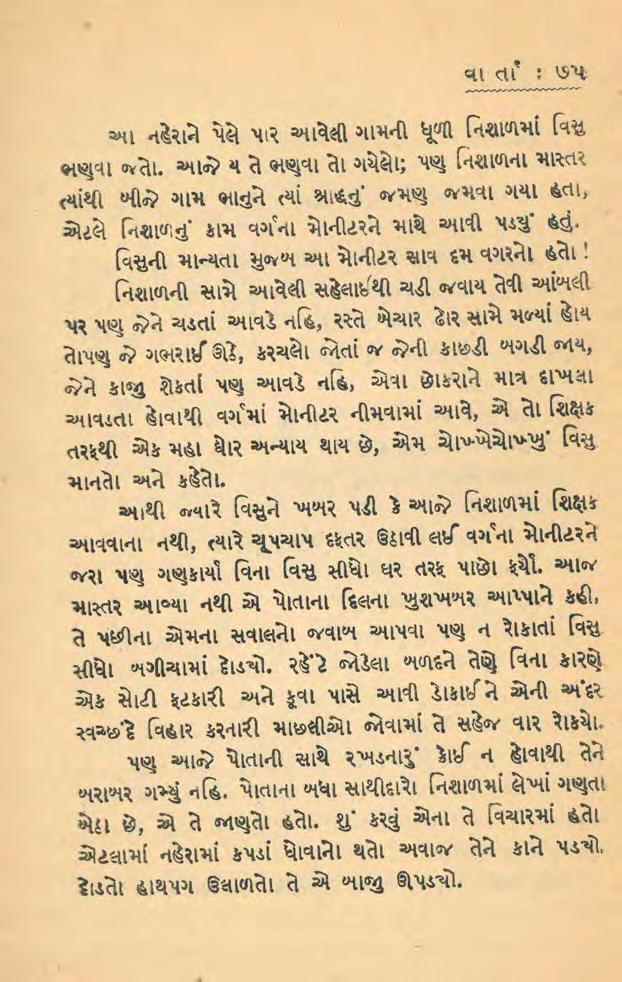 વાર્તા : ૭૫
આ નહેરાને પેલે પાર આવેલી ગામની ધૂળી નિશાળમાં વિસુ
ભણવા જતો. આજે ય તે ભણવા તો ગયેલો; પણ નિશાળના માસ્તર
ત્યાંથી બીજે ગામ ભાનુને ત્યાં શ્રાદ્ધનું જમણ જમવા ગયા હતા,
એટલે નિશાળનું કામ વર્ગના મોનીટરને માથે આવી પડ્યું હતું.
વિસુની માન્યતા મુજબ આ મોનીટર સાવ દમ વગરનો હતો !
નિશાળની સામે આવેલી સહેલાઈથી ચડી જવાય તેવી આંબલી
પર પણ જેને ચડતાં આવડે નહિ, રસ્તે બેચાર ઢોર સામે મળ્યાં હોય
તોપણ જે ગભરાઈ ઊઠે, કરચલો જોતાં જ જેની કાછડી બગડી જાય,
જેને કાજુ શેકતાં પણ આવડે નહિ, એવા છોકરાને માત્ર દાખલા
આવડતા હોવાથી વર્ગમાં મોનીટર નીમવામાં આવે, એ તો શિક્ષક
તરફથી એક મહા ઘોર અન્યાય થાય છે, એમ ચોખ્ખેચોખ્ખું વિસુ
માનતો અને કહેતો.
આથી જ્યારે વિસુને ખબર પડી કે આજે નિશાળમાં શિક્ષક
આવવાના નથી, ત્યારે ચૂપચાપ દફતર ઉઠાવી લઈ વર્ગના મોનીટરને
જરા પણ ગણકાર્યા વિના વિસુ સીધો ઘર તરફ પાછો ફર્યો. આજ
માસ્તર આવ્યા નથી એ પોતાના દિલના ખુશખબર આપ્પાને કહી,
તે પછીના એમના સવાલનો જવાબ આપવા પણ ન રોકાતાં વિસુ
સીધો બગીચામાં દોડ્યો. રહેંટે જોડેલા બળદને તેણે વિના કારણે
એક સોટી ફટકારી અને કૂવા પાસે આવી ડોકાઈને એની અંદર
સ્વચ્છંદે વિહાર કરનારી માછલીઓ જોવામાં તે સહેજ વાર રોકાયો.
પણ આજે પોતાની સાથે રખડનારું કોઈ ન હોવાથી તેને
બરાબર ગમ્યું નહિ. પોતાના બધા સાથીદારો નિશાળમાં લેખાં ગણતા
બેઠા છે, એ તે જાણતો હતો. શું કરવું એના તે વિચારમાં હતો
એટલામાં નહેરામાં કપડાં ધોવાનો થતો અવાજ તેને કાને પડ્યો.
દોડતો હાથપગ ઉલાળતો તે એ બાજુ ઊપડ્યો.